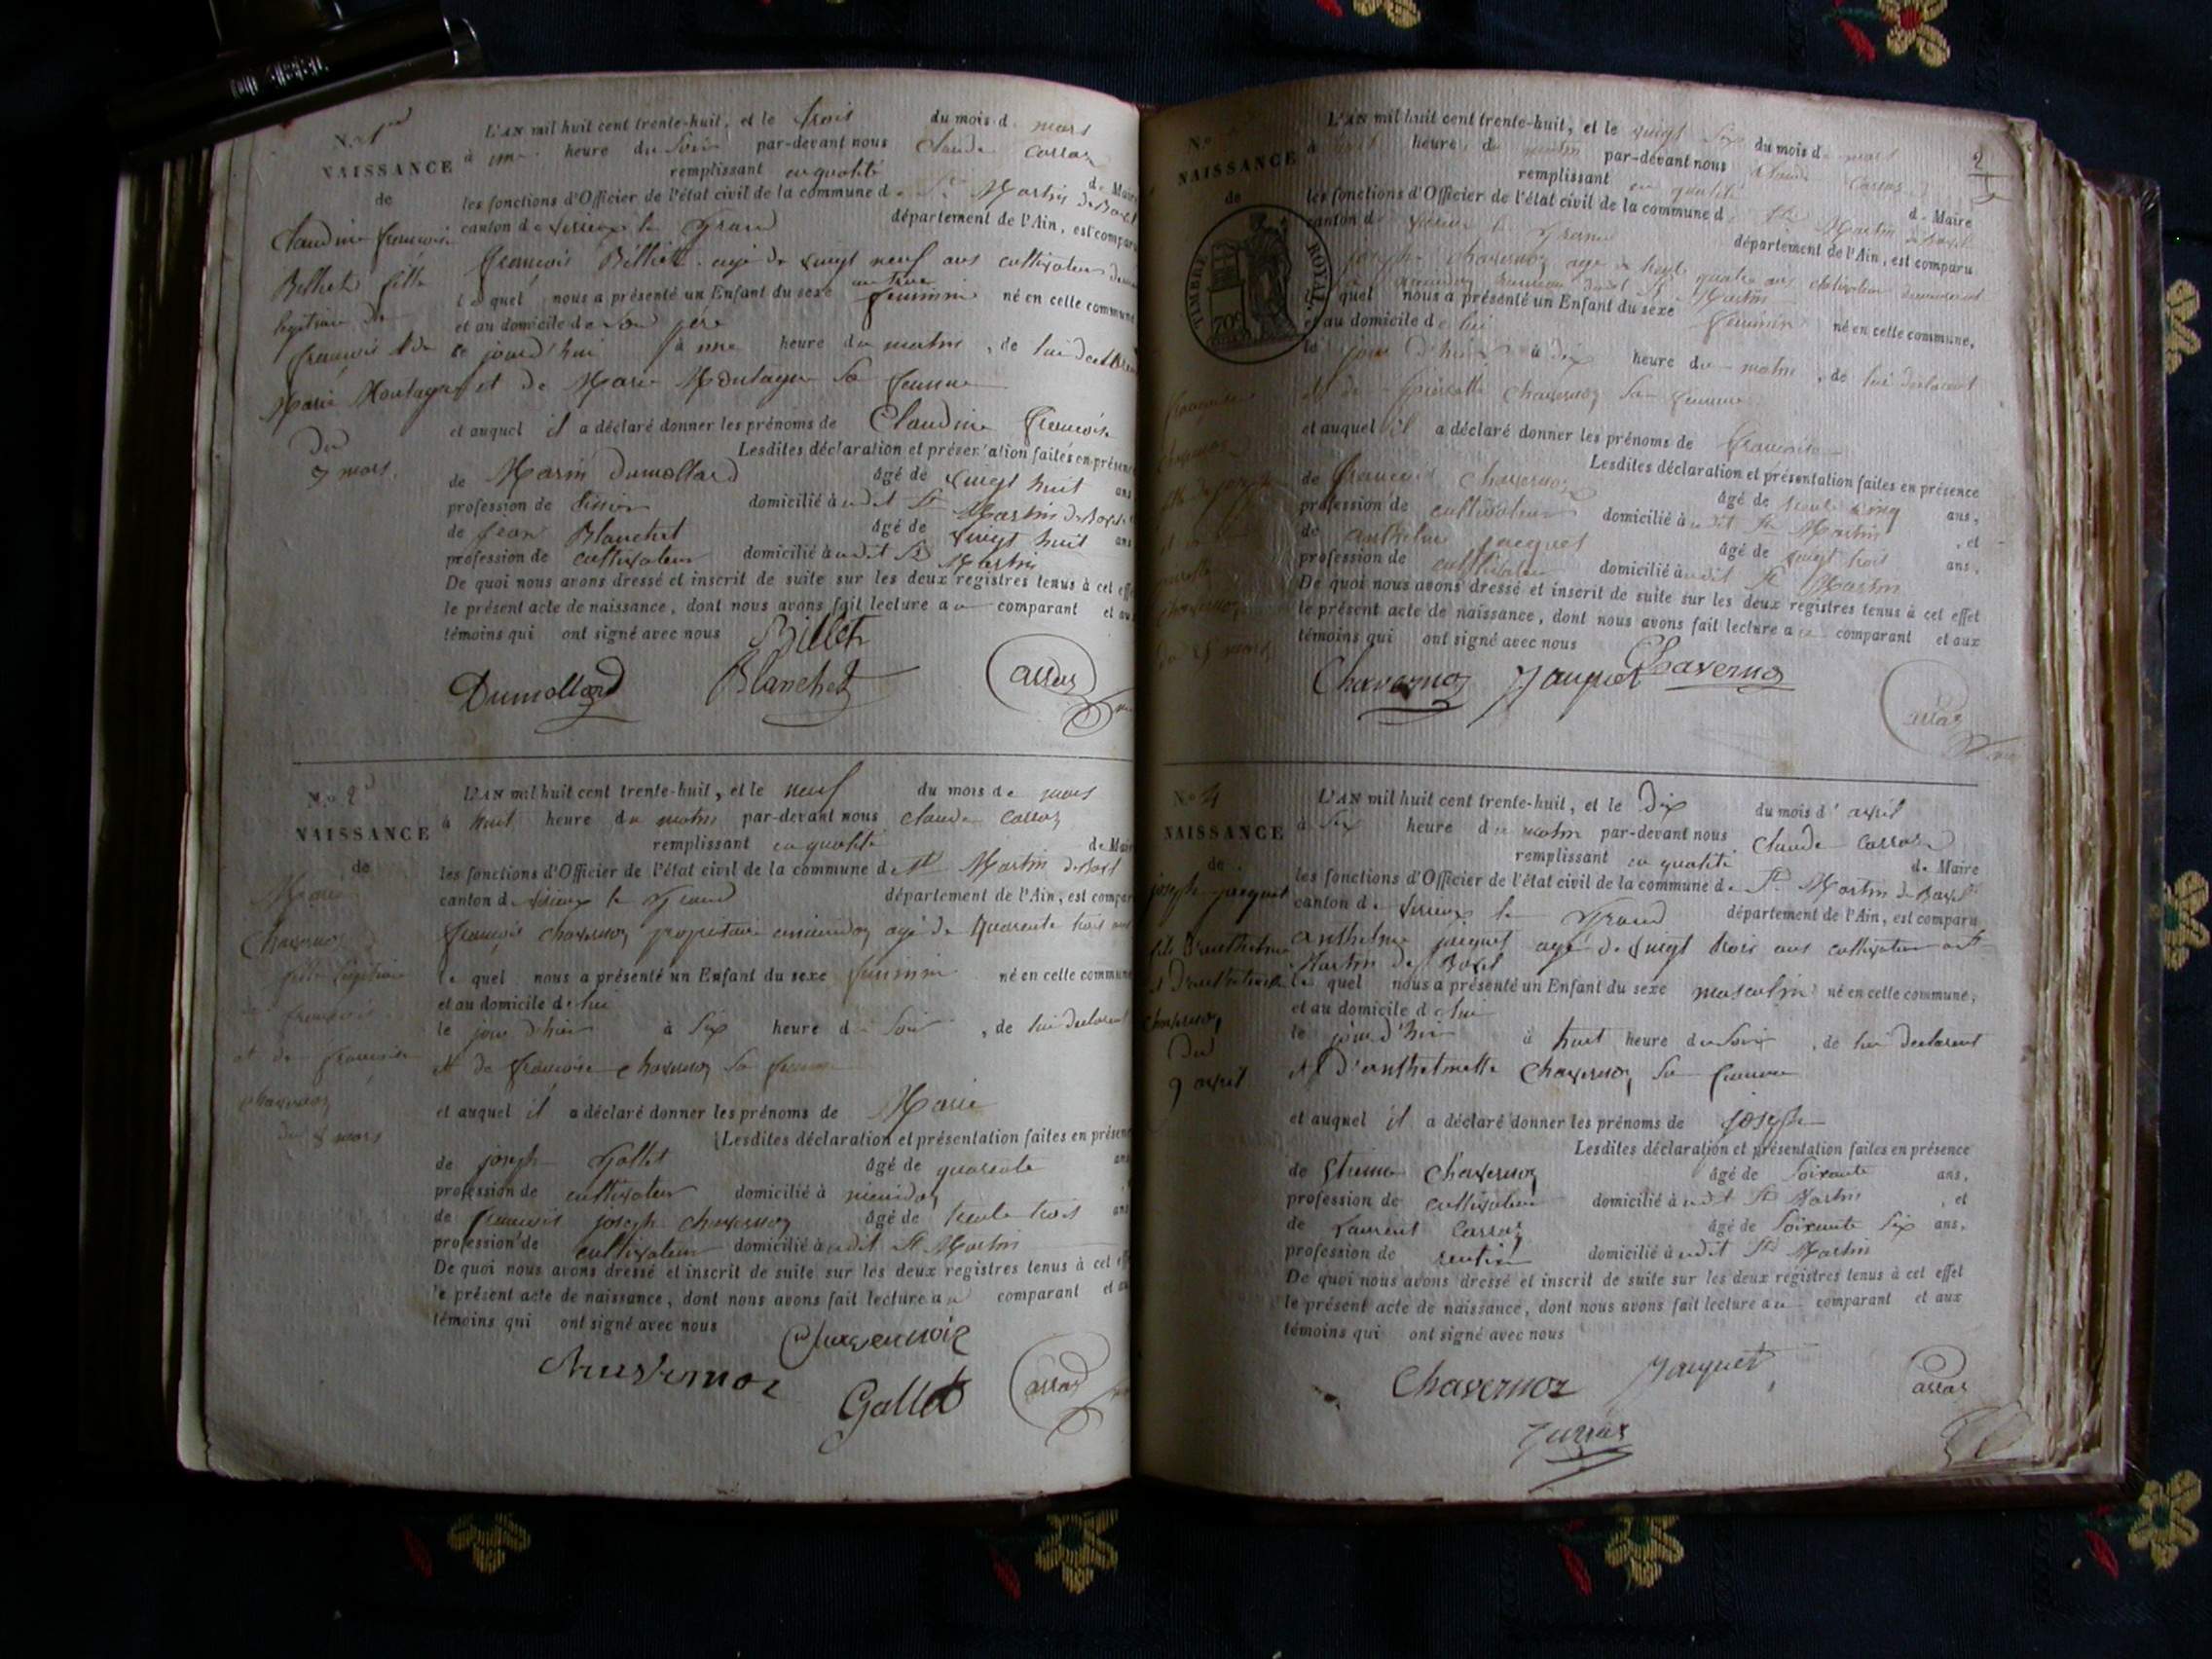 N.o 1er
NAISSANCE
de
Claudine françoise
Billiet fille
legitime de
françois & de
Marie Montagne
du
3 mars.
L'AN mil huit cent trente-huit, et le trois du mois de mars
à une heure du soir par-devant nous Claude Carraz
remplissant en qualité de Maire
les fonctions d'Officier de l'état civil de la commune de St Martin de Bavel
canton de virieux le Grand département de l'Ain, est comparu
françois Billiet agé de vingt neuf ans cultivateur
lequel nous a présenté un Enfant du sexe feminin né en cette commune
et au domicile de son père
ce jourd'hui à une heure du matin, de lui declarant
et de Marie Montagne sa femme
et auquel il a déclaré donner les prénoms de Claudine françoise
Lesdites déclaration et présentation faites en présence
de Marin Dumollard âgé de vingt huit ans
profession de domicilié à udit St Martin de Bavel
de Jean Blanchet âgé de vingt huit ans
profession de cultivateur domicilié à udit St Martin
De quoi nous avons dressé et inscrit de suite sur les deux registres tenus à cet effet
le présent acte de naissance, dont nous avons fait lecture au comparant et aux
témoins qui ont signé avec nous Billet
Dumollard Blanchet Carraz
N.o 2
NAISSANCE
de
Marie
Chavernoz
fille legitime
de françois
et de françoise
chavernoz
du 8 mars
L'AN mil huit cent trente-huit, et le neuf du mois de mars
à huit heure du matin par-devant nous Claude Carraz
remplissant en qualité de Maire
les fonctions d'Officier de l'état civil de la commune de St Martin de Bavel
canton de virieux le Grand département de l'Ain, est comparu
françois chavernoz propriétaire agé de quarente trois ans
lequel nous a présenté un Enfant du sexe feminin né en cette commune
et au domicile de lui
le jour d'hier à six heure du soir, de lui declarant
et de françoise chavernoz sa femme
et auquel il a déclaré donner les prénoms de Marie
Lesdites déclaration et présentation faites en présence
de joseph Gallet âgé de quarante ans
profession de cultivateur domicilié à
de françois joseph chavernoz âgé de trente trois ans
profession de cultivateur domicilié à udit St Martin
De quoi nous avons dressé et inscrit de suite sur les deux registres tenus à cet effet
le présent acte de naissance, dont nous avons fait lecture au comparant et aux
témoins qui ont signé avec nous
Gallet Carraz
N.o
NAISSANCE
de
TIMBRE ROYAL
70c
françoise
du 25 mars
2
L'AN mil huit cent trente-huit, et le vingt six du mois de mars
à huit heure du matin par-devant nous Claude Carraz
remplissant en qualité de Maire
les fonctions d'Officier de l'état civil de la commune de St Martin de Bavel
canton de virieux le Grand département de l'Ain, est comparu
joseph chavernoz agé de trente quatre ans cultivateur demeurant
quel nous a présenté un Enfant du sexe feminin né en cette commune,
et au domicile de lui
le jour d'hier à dix heure du matin, de lui declarant
et de pierrette chavernoz sa femme
et auquel il a déclaré donner les prénoms de françoise
Lesdites déclaration et présentation faites en présence
de françois chavernoz âgé de trente cinq ans,
profession de cultivateur domicilié à udit St Martin, et
de anthelme jacquet âgé de vingt trois ans,
profession de cultivateur domicilié à udit St Martin
De quoi nous avons dressé et inscrit de suite sur les deux registres tenus à cet effet
le présent acte de naissance, dont nous avons fait lecture au comparant et aux
témoins qui ont signé avec nous
Chavernoz Jacquet Chavernoz
Carraz
N.o 4
NAISSANCE
de
joseph jacquet
fils d'anthelme
et d'anthelmette
chavernoz
du
9 avril
L'AN mil huit cent trente-huit, et le dix du mois d'avril
à six heure du matin par-devant nous Claude Carraz
remplissant en qualité de Maire
les fonctions d'Officier de l'état civil de la commune de St Martin de Bavel
canton de virieux le Grand département de l'Ain, est comparu
anthelme jacquet agé de vingt trois ans cultivateur a St
Martin de Bavel
lequel nous a présenté un Enfant du sexe masculin né en cette commune,
et au domicile de lui
le jour d'hier à huit heure du soir, de lui declarant
et d'anthelmette chavernoz sa femme
et auquel il a déclaré donner les prénoms de joseph
Lesdites déclaration et présentation faites en présence
de Etienne Chavernoz âgé de soixante ans,
profession de cultivateur domicilié à udit St Martin, et
de Laurent Carraz âgé de soixante six ans,
profession de rentier domicilié à udit St Martin
De quoi nous avons dressé et inscrit de suite sur les deux registres tenus à cet effet
le présent acte de naissance, dont nous avons fait lecture au comparant et aux
témoins qui ont signé avec nous
Chavernoz Jacquet Carraz